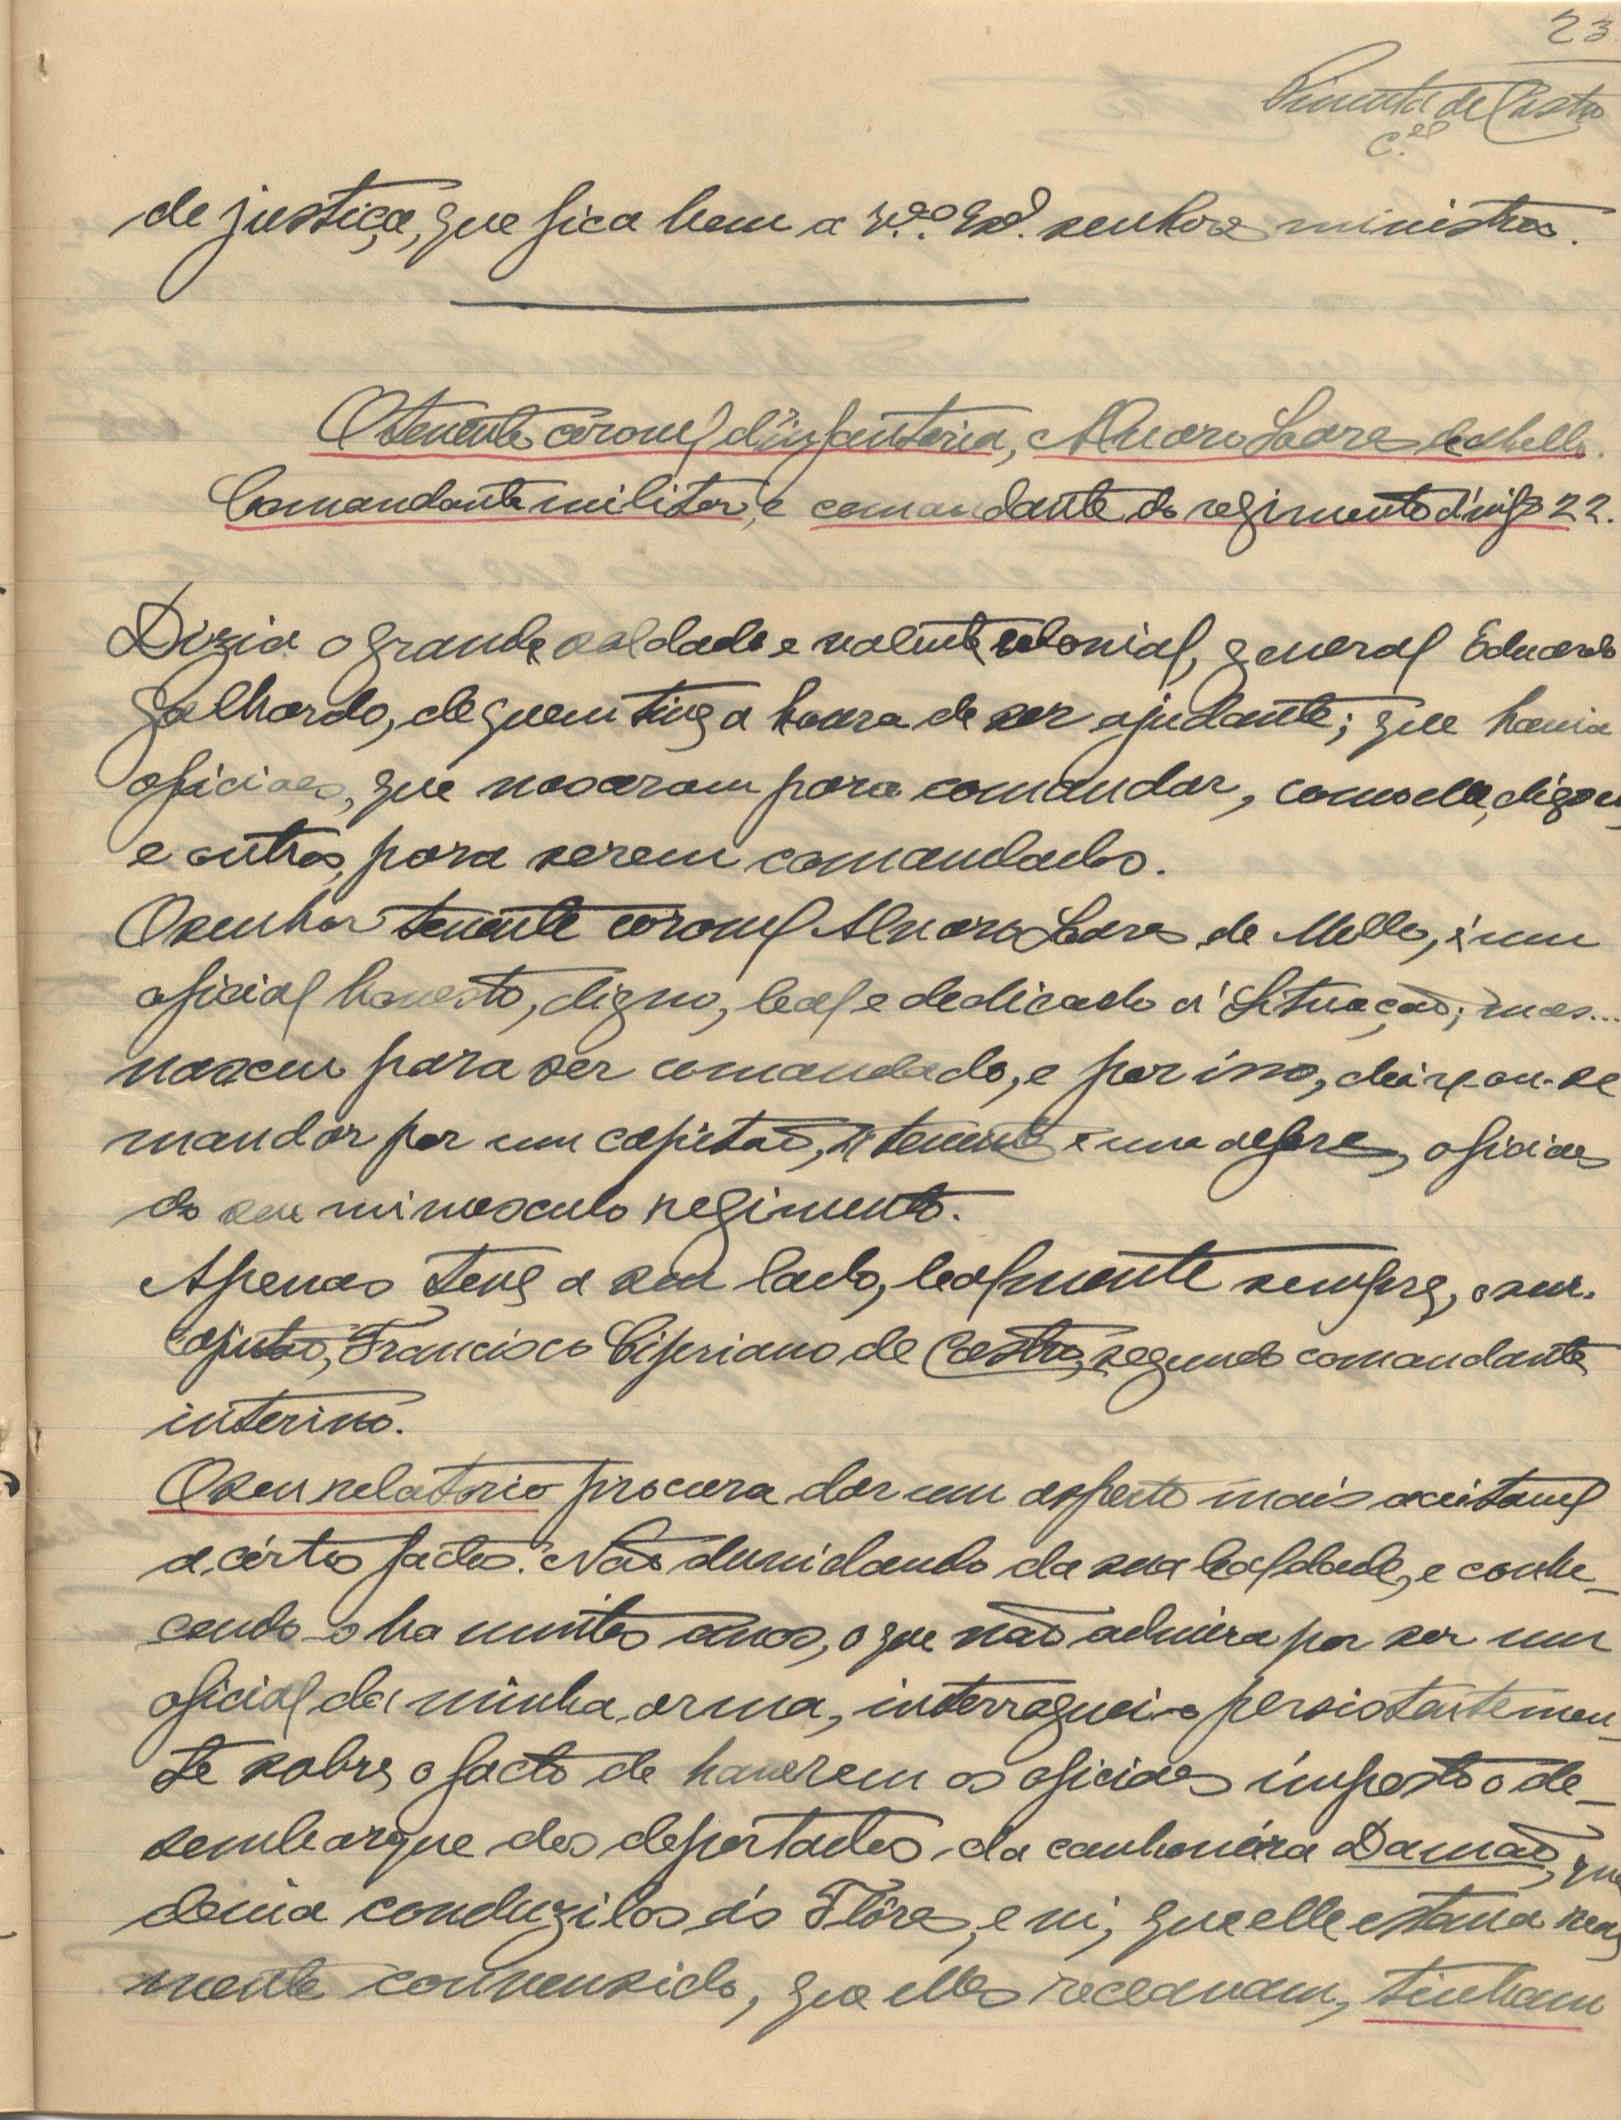 23
Pimenta de Castro
C.el
de justiça, que fica bem a senhores ministros.
O tenente coronel d'infantaria, Alvaro Soares de Mello.
Comandante militar, e comandante do regimento d'inf.ª 22.
Dizia o grande soldado e valente colonial, general Eduardo
Galhardo, de quem tive a honra de ser ajudante; que havia
oficiaes, que nasceram para comandar, como elle, digo eu
e outros, para serem comandados.
O senhor tenente coronel Alvaro Soares de Mello, é um
oficial honesto, digno, leal e dedicado á Situação; mas...
nasceu para ser comandado, e por isso, deixou-se
mandar por um capitão, tenente e um alferes, oficiaes
do seu minusculo regimento.
Apenas teve a seu lado, lealmente sempre, o seu
capitão, Francisco Cipriano de Castro, segundo comandante
interino.
O seu relatorio procura dar um aspecto mais aceitavel
a certos factos. Não duvidando da sua lealdade, e conhe-
cendo-o ha muitos anos, o que não admira por ser um
oficial da minha arma, interroguei-o persistentemen-
te sobre o facto de haverem os oficiaes imposto o de-
sembarque dos deportados da canhoneira Damão, que
devia conduzilos ás Flôres, e vi, que elle estava real
mente convensido, que elles receavam, tinham